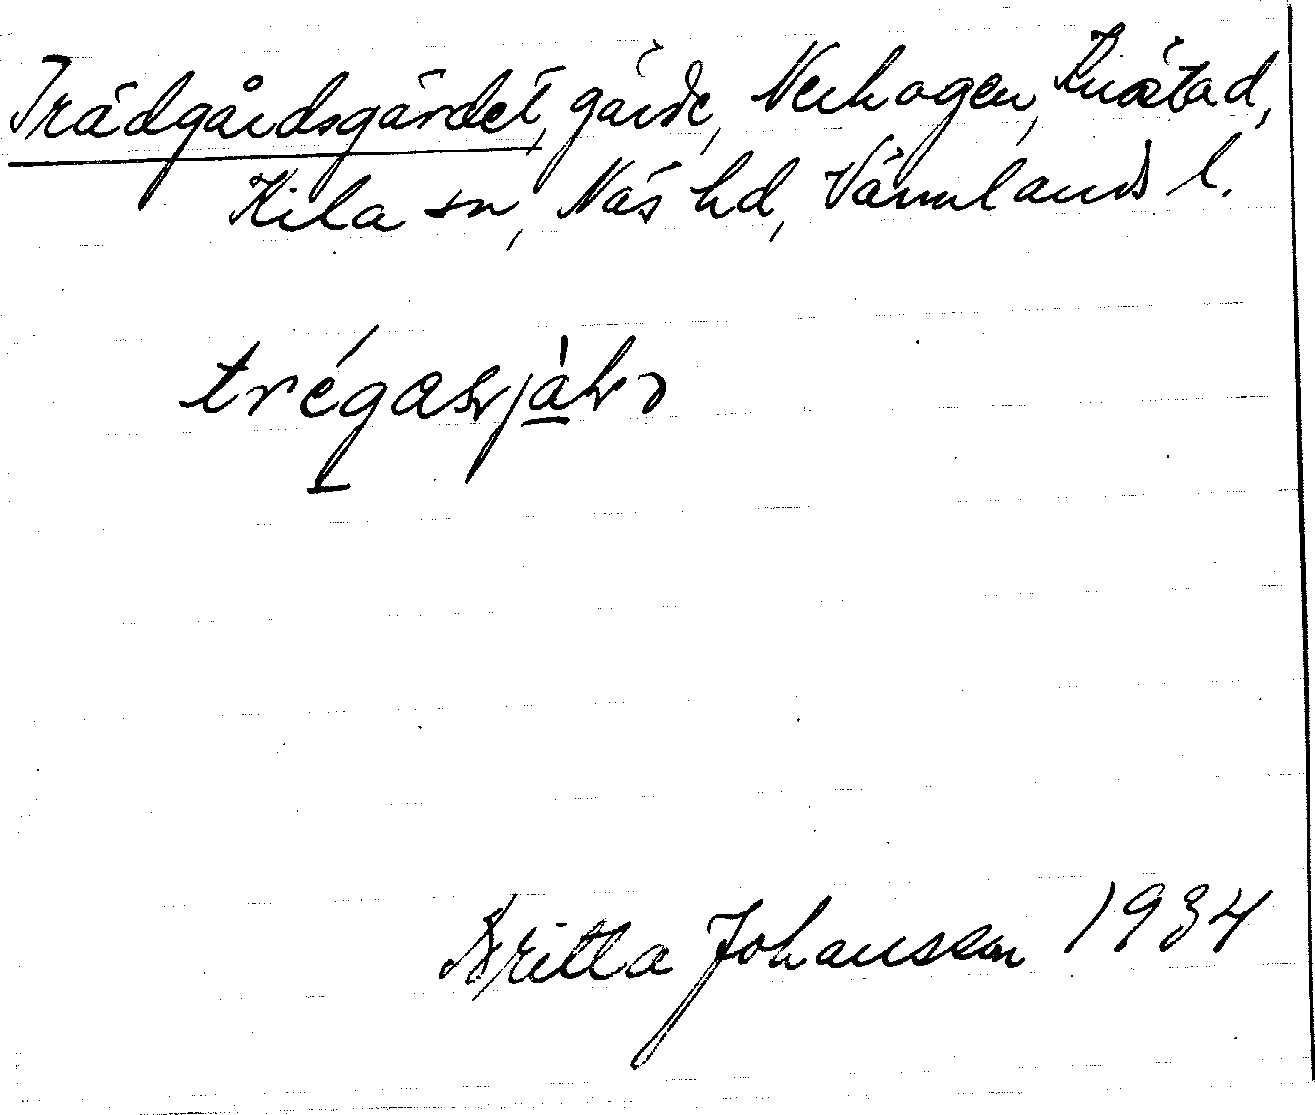 Trädgårdsgärdet, gärde, Nerhagen, Knöstad,
Kila sn, Näs hd, Värmlands l.
Britta Johansson 1934